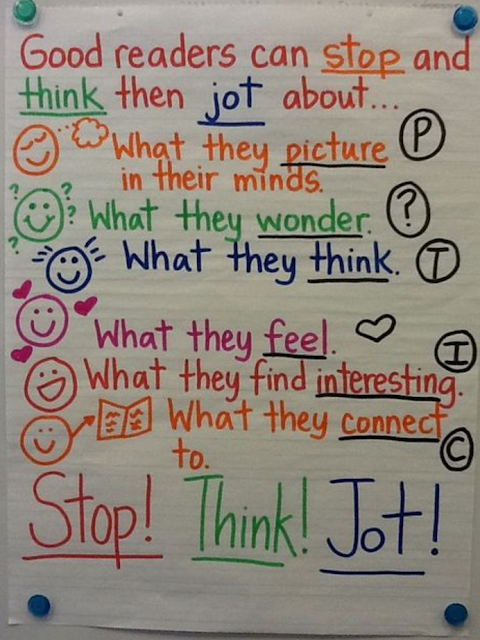 Good readers can stop and
think then jot about...
What they picture P
in their minds.
? ? ? ? What they wonder. ?
What they think. T
What they feel.
I
What they find interesting.
What they connect
to. C
Stop! Think! Jot!